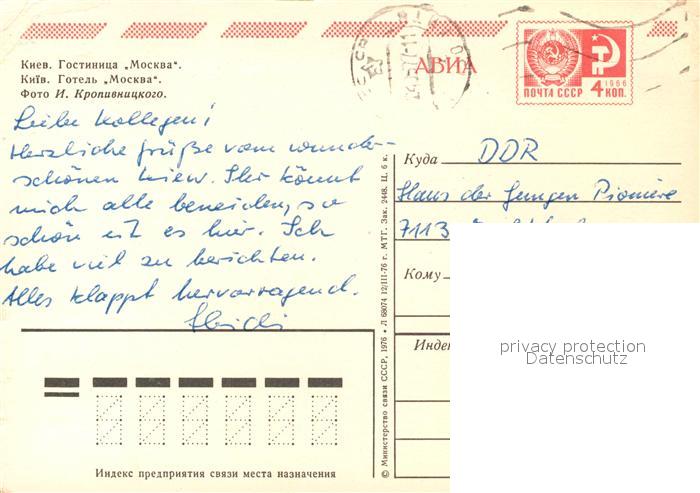 Киев. Гостиница „Москва“.
Київ. Готель „Москва“.
Фото И. Кропивницкого.
АВИА
ПОЧТА СССР
1966
4 КОП.
Liebe Kollegen!
Herzliche Grüße vom wunder-
schönen Kiew. Ihr könnt
mich alle beneiden, so
schön ist es hier. Ich
habe viel zu berichten.
Alles klappt hervorragend.
Heidi
Куда DDR
Haus der Jungen Pioniere
7113
Кому
Индек
Индекс предприятия связи места назначения
© Министерство связи СССР, 1976 • Л 68074 12/III-76 г. МТГ. Зак. 2448. Ц. 6 к.
privacy protection
Datenschutz